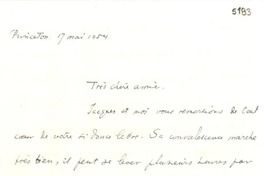 5193
Princeton 17 mai 1954.
Très chère amie.
Jacques et moi vous remercions de tout
cœur de votre si douce lettre. Sa convalescence marche
très bien, il peut se lever plusieurs heures par